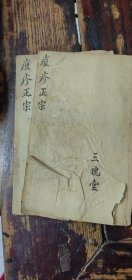 痘疹正宗
痘疹正宗
三槐堂